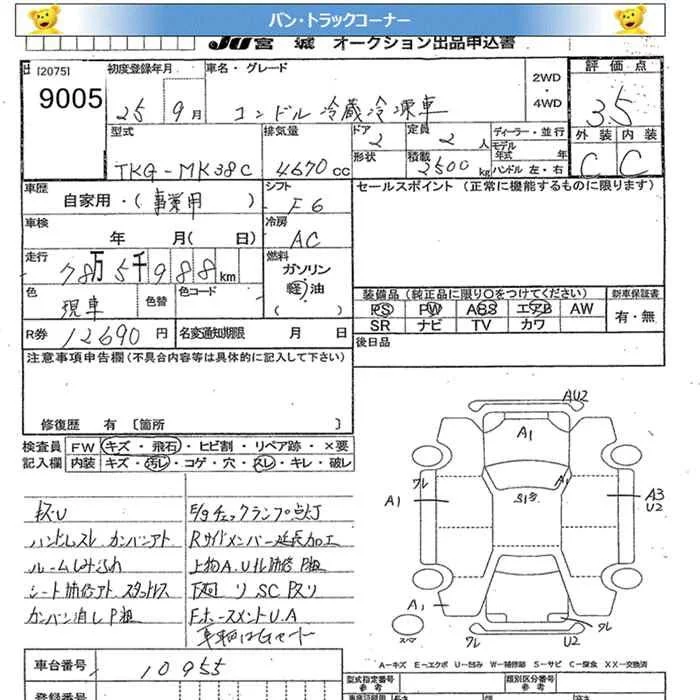 バン・トラックコーナー
JU宮城 オークション出品申込書
[2075]
9005
初度登録年月
25年9月
車名・グレード
コンドル 冷蔵冷凍車
2WD
・
4WD
評価点
3.5
外装 内装
C C
型式
TKG-MK38C
排気量
4670cc
ドア
2
定員
2人
ディーラー・並行
形状
積載
2500kg
モデル年式 年
ハンドル 左・右
車歴
自家用・(事業用)
シフト
F6
セールスポイント (正常に機能するものに限ります)
車検
年 月( 日)
冷房
AC
走行
78万5千988km
燃料
ガソリン
軽油
( )
色
現車
色替
色コード
装備品(純正品に限り○をつけてください)
新車保証書
PS PW ABS エアB AW
SR ナビ TV カワ
有・無
R券
12690円
名変通知期限 月 日
後日品
注意事項申告欄(不具合内容等は具体的に記入して下さい)
修復歴 有〔箇所 〕
検査員
記入欄
FW キズ・飛石・ヒビ割・リペア跡・×要
内装 キズ・汚レ・コゲ・穴・スレ・キレ・破レ
キズU
ハンドルスレ カンバンアト
ルームしみよごれ
シート補修アト スタッドレス
カンバン消しP粗
E/gチェックランプ点灯
Rサイドメンバー延長加工
上物A.Uキレ補修 P粗
下廻り SC Pスリ
FホースメントU.A
AU2
A1
A1
S1多
ワレ
A1
A3
U2
A1
ワレ
U2
スペア
A-キズ E-エクボ U-凹み W-補修跡 S-サビ C-腐食 XX-交換済
車台番号
10955
登録番号
型式指定番号
参考
類別区分番号
参考